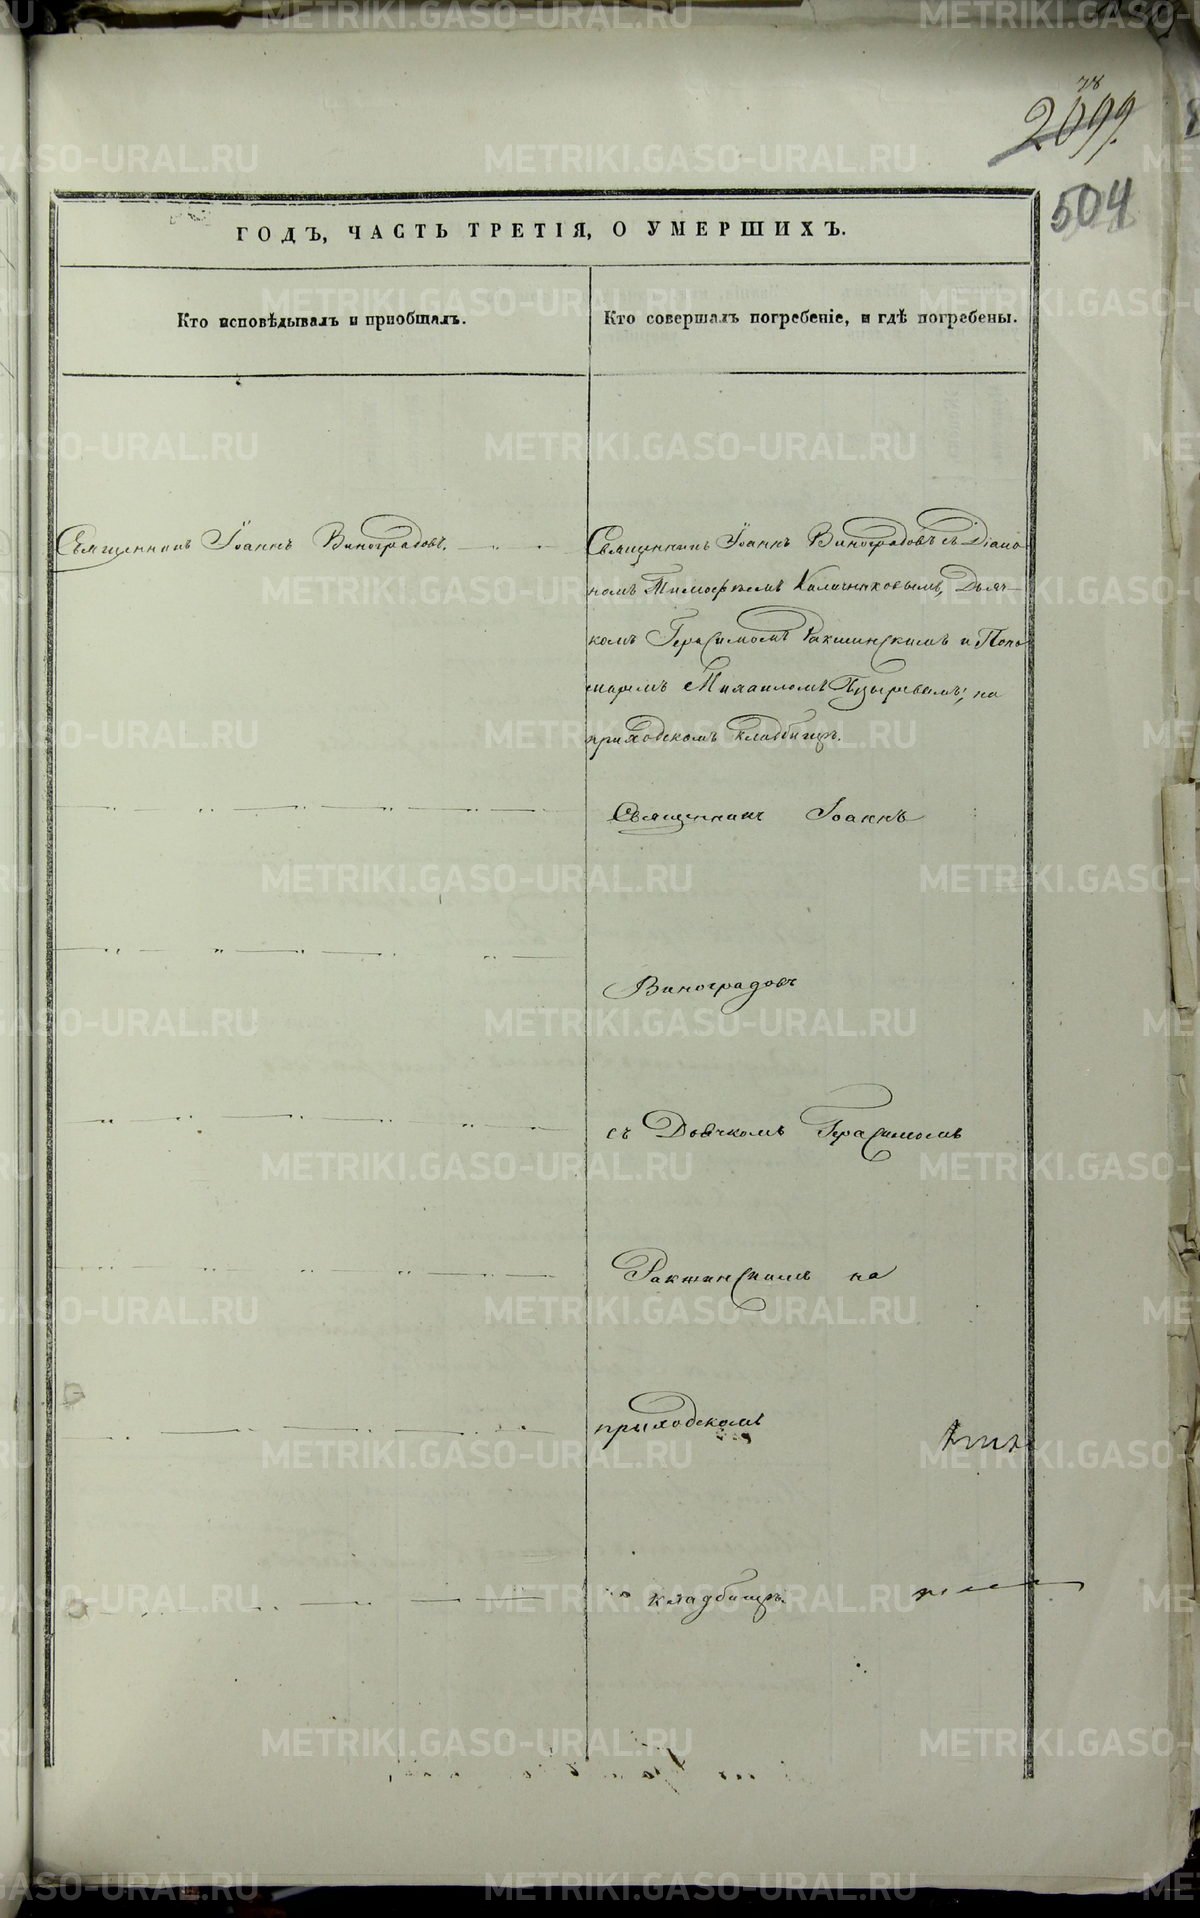 78
2099.
504
ГОДЪ, ЧАСТЬ ТРЕТІЯ, О УМЕРШИХЪ.
Кто исповѣдывалъ и пріобщалъ.
Кто совершалъ погребеніе, и гдѣ погребены.
Священникъ Іоаннъ Виноградовъ.
Священникъ Іоаннъ Виноградовъ съ Діако
номъ Тимофеемъ Калачниковымъ, Дьяч
комъ Герасимомъ Ракшинскимъ и Поно
маремъ Михаиломъ Пузыревымъ, на
приходскомъ кладбищѣ.
Священникъ Іоаннъ
Виноградовъ
съ Дьячкомъ Герасимомъ
Ракшинскимъ на
приходскомъ
кладбищѣ.
METRIKI.GASO-URAL.RU